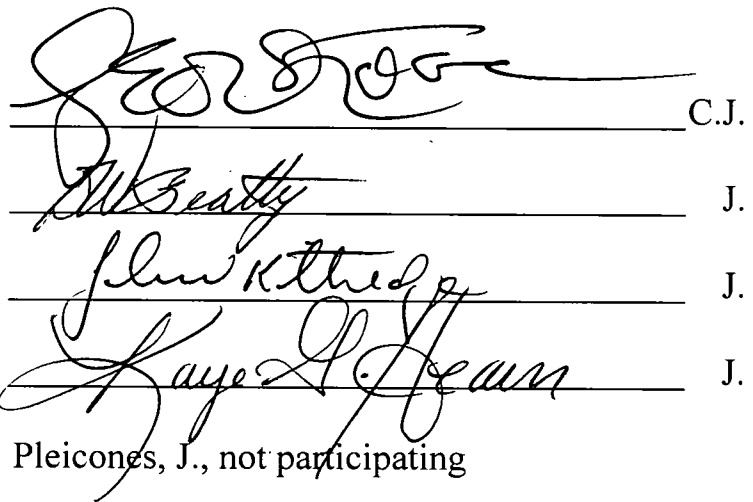 C.J.
DWBeatty J.
John Kittredge J.
Kaye G. Hearn J.
Pleicones, J., not participating